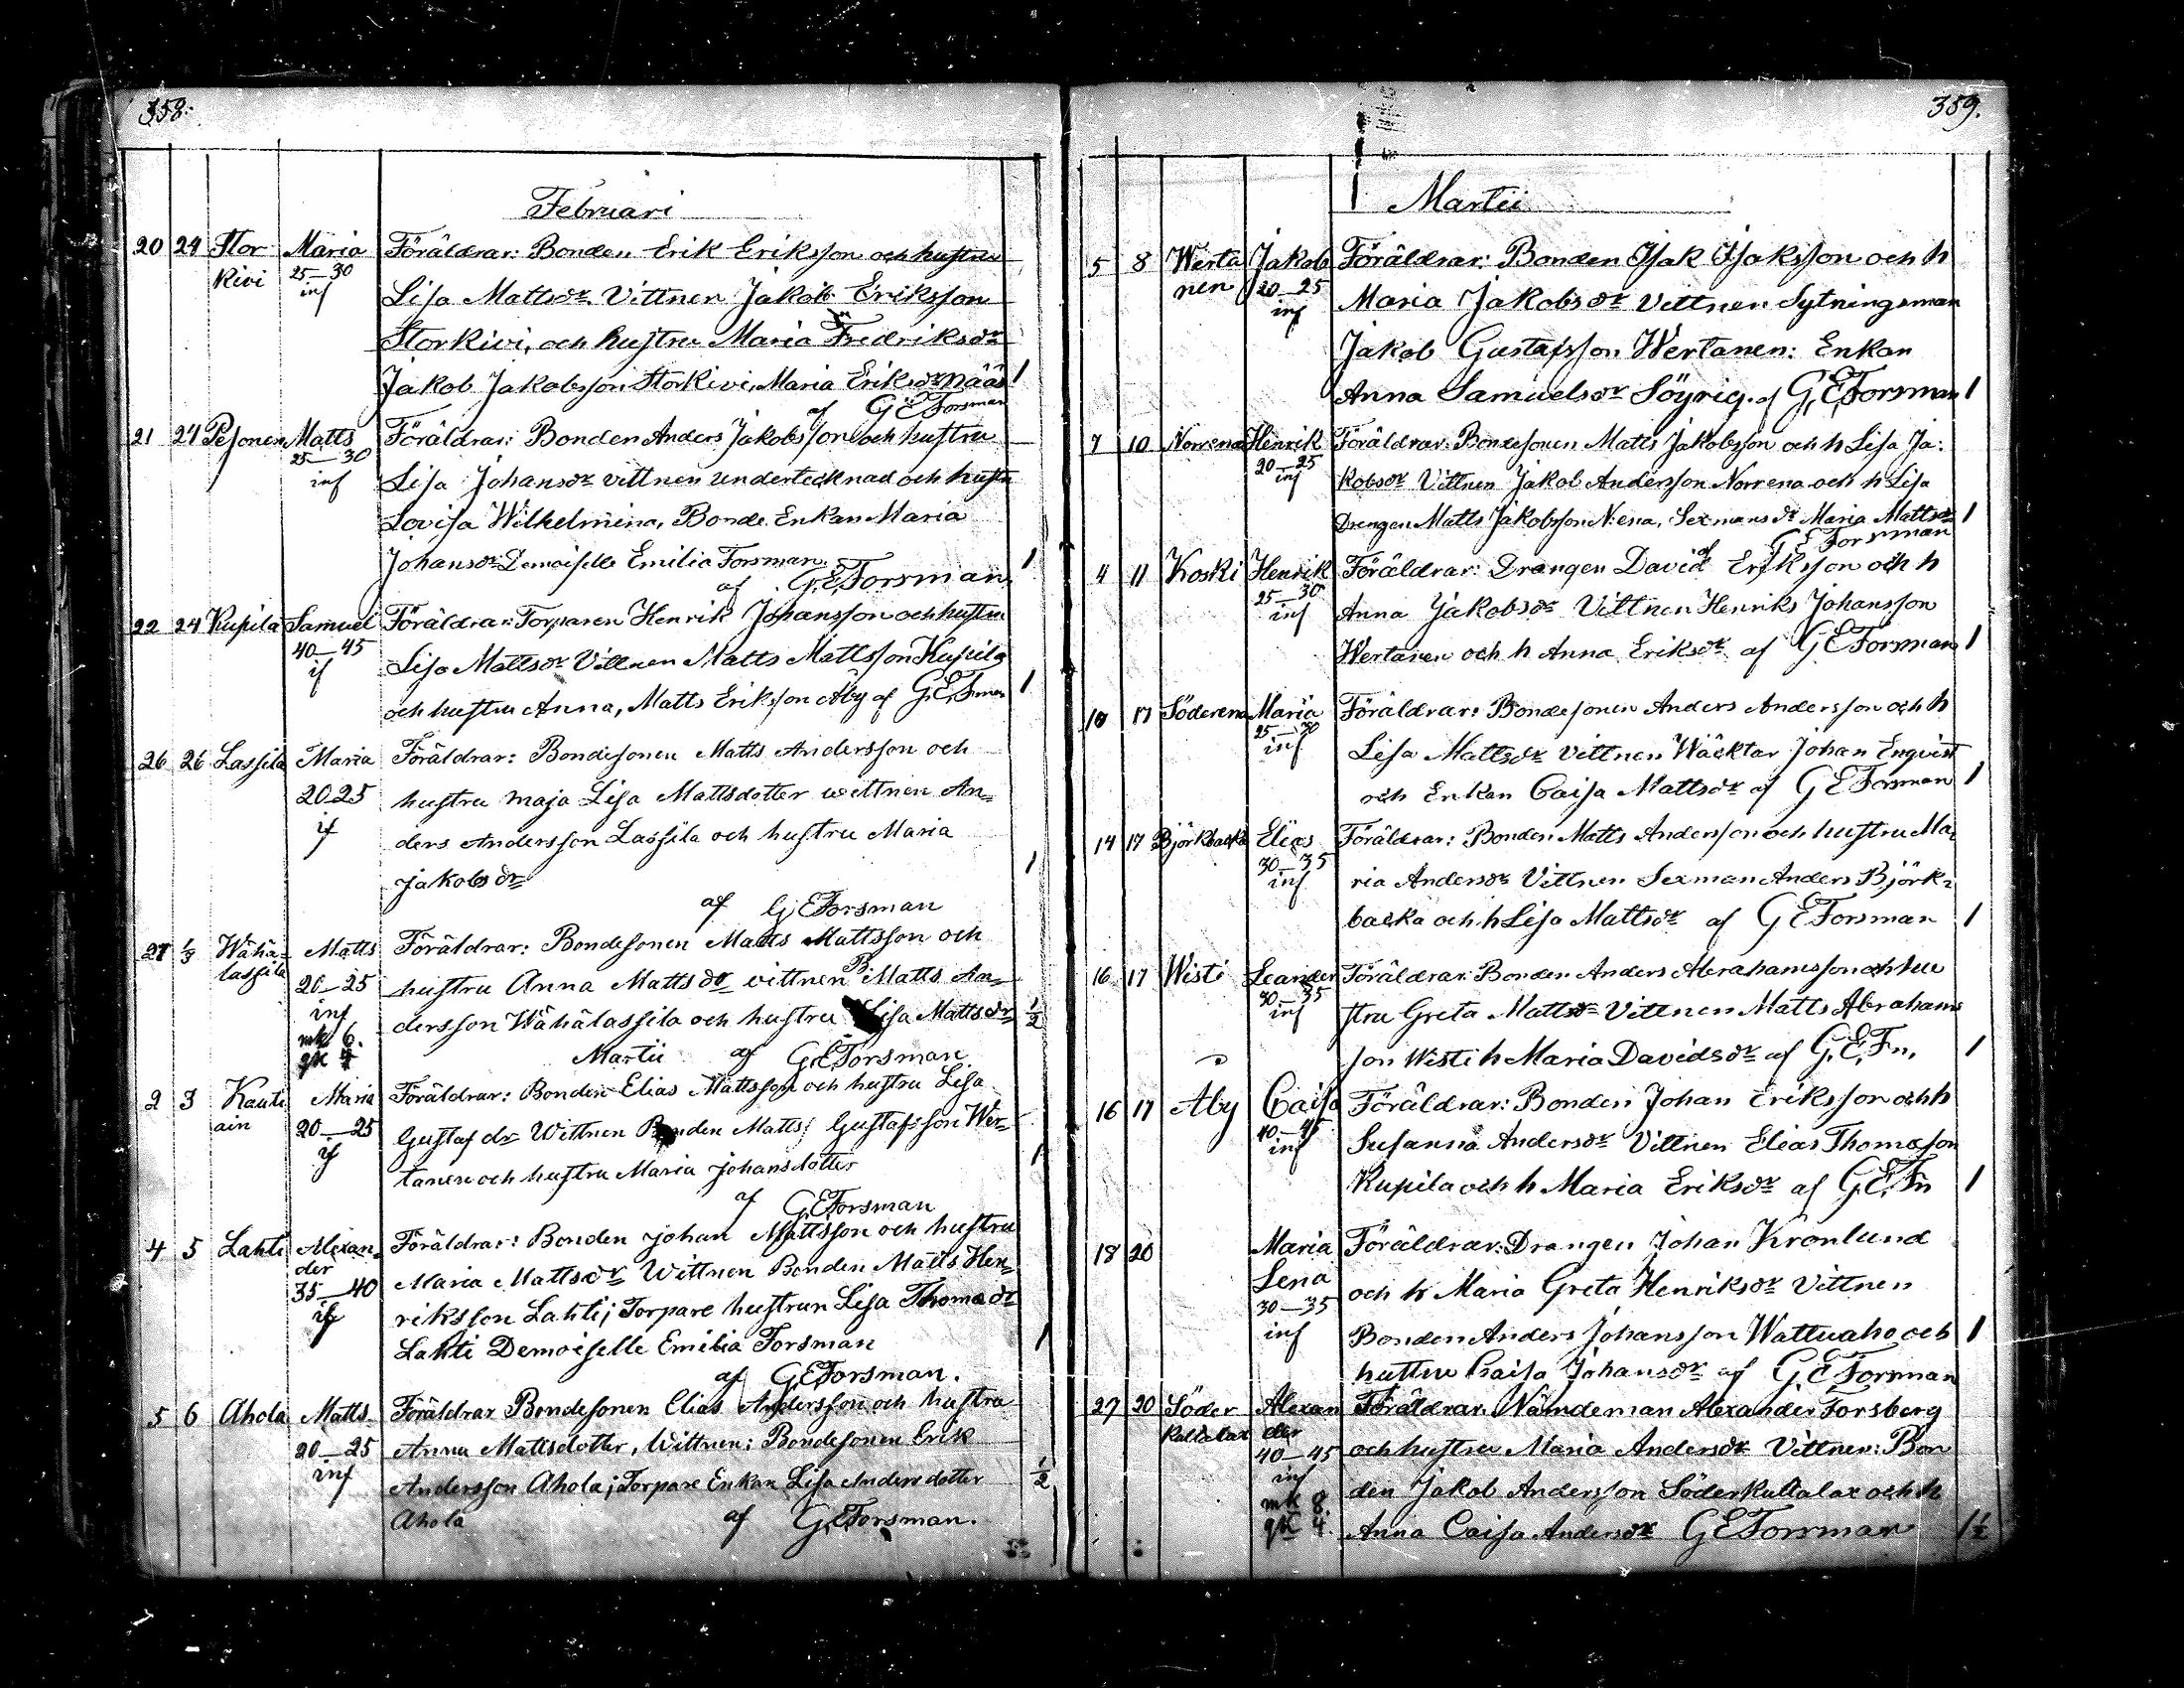 358.
Februari
20 24 Stor Maria Föräldrar: Bonden Erik Eriksson och hustru
kivi 25–30 inf Lisa Mattsdr. Vittnen Jakob Eriksson
Storkivi, och hustru Maria Fredriksdr
Jakob Jakobsson Storkivi, Maria Eriksdr Nääs 1
af G E Forsman
21 24 Pesonen Matts Föräldrar: Bonden Anders Jakobsson och hustru
25–30 inf Lisa Johansdr vittnen undertecknad och hustru
Lovisa Wilhelmina, Bonde Enkan Maria
Johansdr Demoiselle Emilia Forsman. 1
af G.E.Forsman.
22 24 Kupila Samuel Föräldrar: Torparen Henrik Johansson och hustru
40–45 if Lisa Mattsdr Vittnen Matts Mattsson Kupila
och hustru Anna, Matts Eriksson Aby af G.E.Fsman 1
26 26 Lassila Maria Föräldrar: Bondesonen Matts Andersson och
20 25 hustru Maja Lisa Mattsdotter wittnen An=
if ders Andersson Lassila och hustru Maria
Jakobsdr 1
af G.E.Forsman
27 1/3 Wähä= Matts Föräldrar: Bondesonen Matts Mattsson och
lassila 20–25 hustru Anna Mattsdr vittnen B. Matts An=
inf dersson Wähälassila och hustru Lisa Mattsdr 1/2
mk 6.
gk 4 Martii af G.E.Forsman
2 3 Kauti Maria Föräldrar: Bonden Elias Mattsson och hustru Lisa
ain 20–25 Gustafdr Wittnen Bonden Matts Gustafsson Wer=
if tanen och hustru Maria Johansdotter 1
af G.E.Forsman
4 5 Lahti Alexan= Föräldrar: Bonden Johan Mattsson och hustru
der
35–40 Maria Mattsdr Wittnen Bonden Matts Hen=
if riksson Lahti; Torpare hustrun Lisa Thomasdr
Lahti Demoiselle Emilia Forsman 1
af G.E.Forsman.
5 6 Ahola Matts Föräldrar Bondesonen Elias Andersson och hustru
20–25 Anna Mattsdotter, Wittnen: Bondesonen Erik
inf Andersson Ahola; Torpare Enkan Lisa Andersdotter 1/2
Ahola af G.E.Forsman.
359.
Martii
5 8 Werta Jakob Föräldrar: Bonden Isak Isaksson och h
nen 20–25 inf Maria Jakobsdr Vittnen Sytningsman
Jakob Gustafsson Wertanen: Enkan
Anna Samuelsdr Söyrig. af G.E.Forsman 1
7 10 Norrena Henrik Föräldrar: Bondesonen Matts Jakobsson och h Lisa Ja:
20–25 inf kobsdr Vittnen Jakob Andersson Norrena och h Lisa
Drengen Matts Jakobsson N:ena, Sexmansdr Maria Mattsdr 1
af G E Forsman
4 11 Koski Henrik Föräldrar: Drangen David Eriksson och h
25–30 inf Anna Jakobsdr Vittnen Henriks Johansson
Wertanen och h Anna Eriksdr af G E Forsman 1
10 17 Söderena Maria Föräldrar: Bondesonen Anders Andersson och h
25–30 inf Lisa Mattsdr Vittnen Wäcktar Johan Enqvist
och Enkan Caisa Mattsdr af G E Forsman 1
14 17 Björkbacka Elias Föräldrar: Bonden Matts Andersson och hustru Ma
30–35 inf ria Andersdr Vittnen Sexman Anders Björk=
backa och h Lisa Mattsdr af G E Forsman 1
16 17 Wisti Leander Föräldrar: Bonden Anders Abrahamsson och hu
30–35 inf stru Greta Mattsdr Vittnen Matts Abrahams
son Wisti h Maria Davidsdr af G.E.Fn. 1
16 17 Aby Caisa Föräldrar: Bonden Johan Eriksson och h
40–45 inf Susanna Andersdr Vittnen Elias Thomasson
Kupila och h Maria Eriksdr af G.E.Fn 1
18 20 Maria Föräldrar: Drangen Johan Kronlund
Lena och h Maria Greta Henriksdr Vittnen
30–35
inf Bonden Anders Johansson Wattuaho och 1
huttru Caisa Johansdr af G E Forsman
27 20 Söder Alexan Föräldrar. Nämdeman Alexander Forsberg
Kullalax der
40–45 och hustru Maria Andersdr Vittnen: Bon
inf
mk 8. den Jakob Andersson Söderkullalax och h
gk 4. Anna Caisa Andersdr G E Forsman 1 1/2